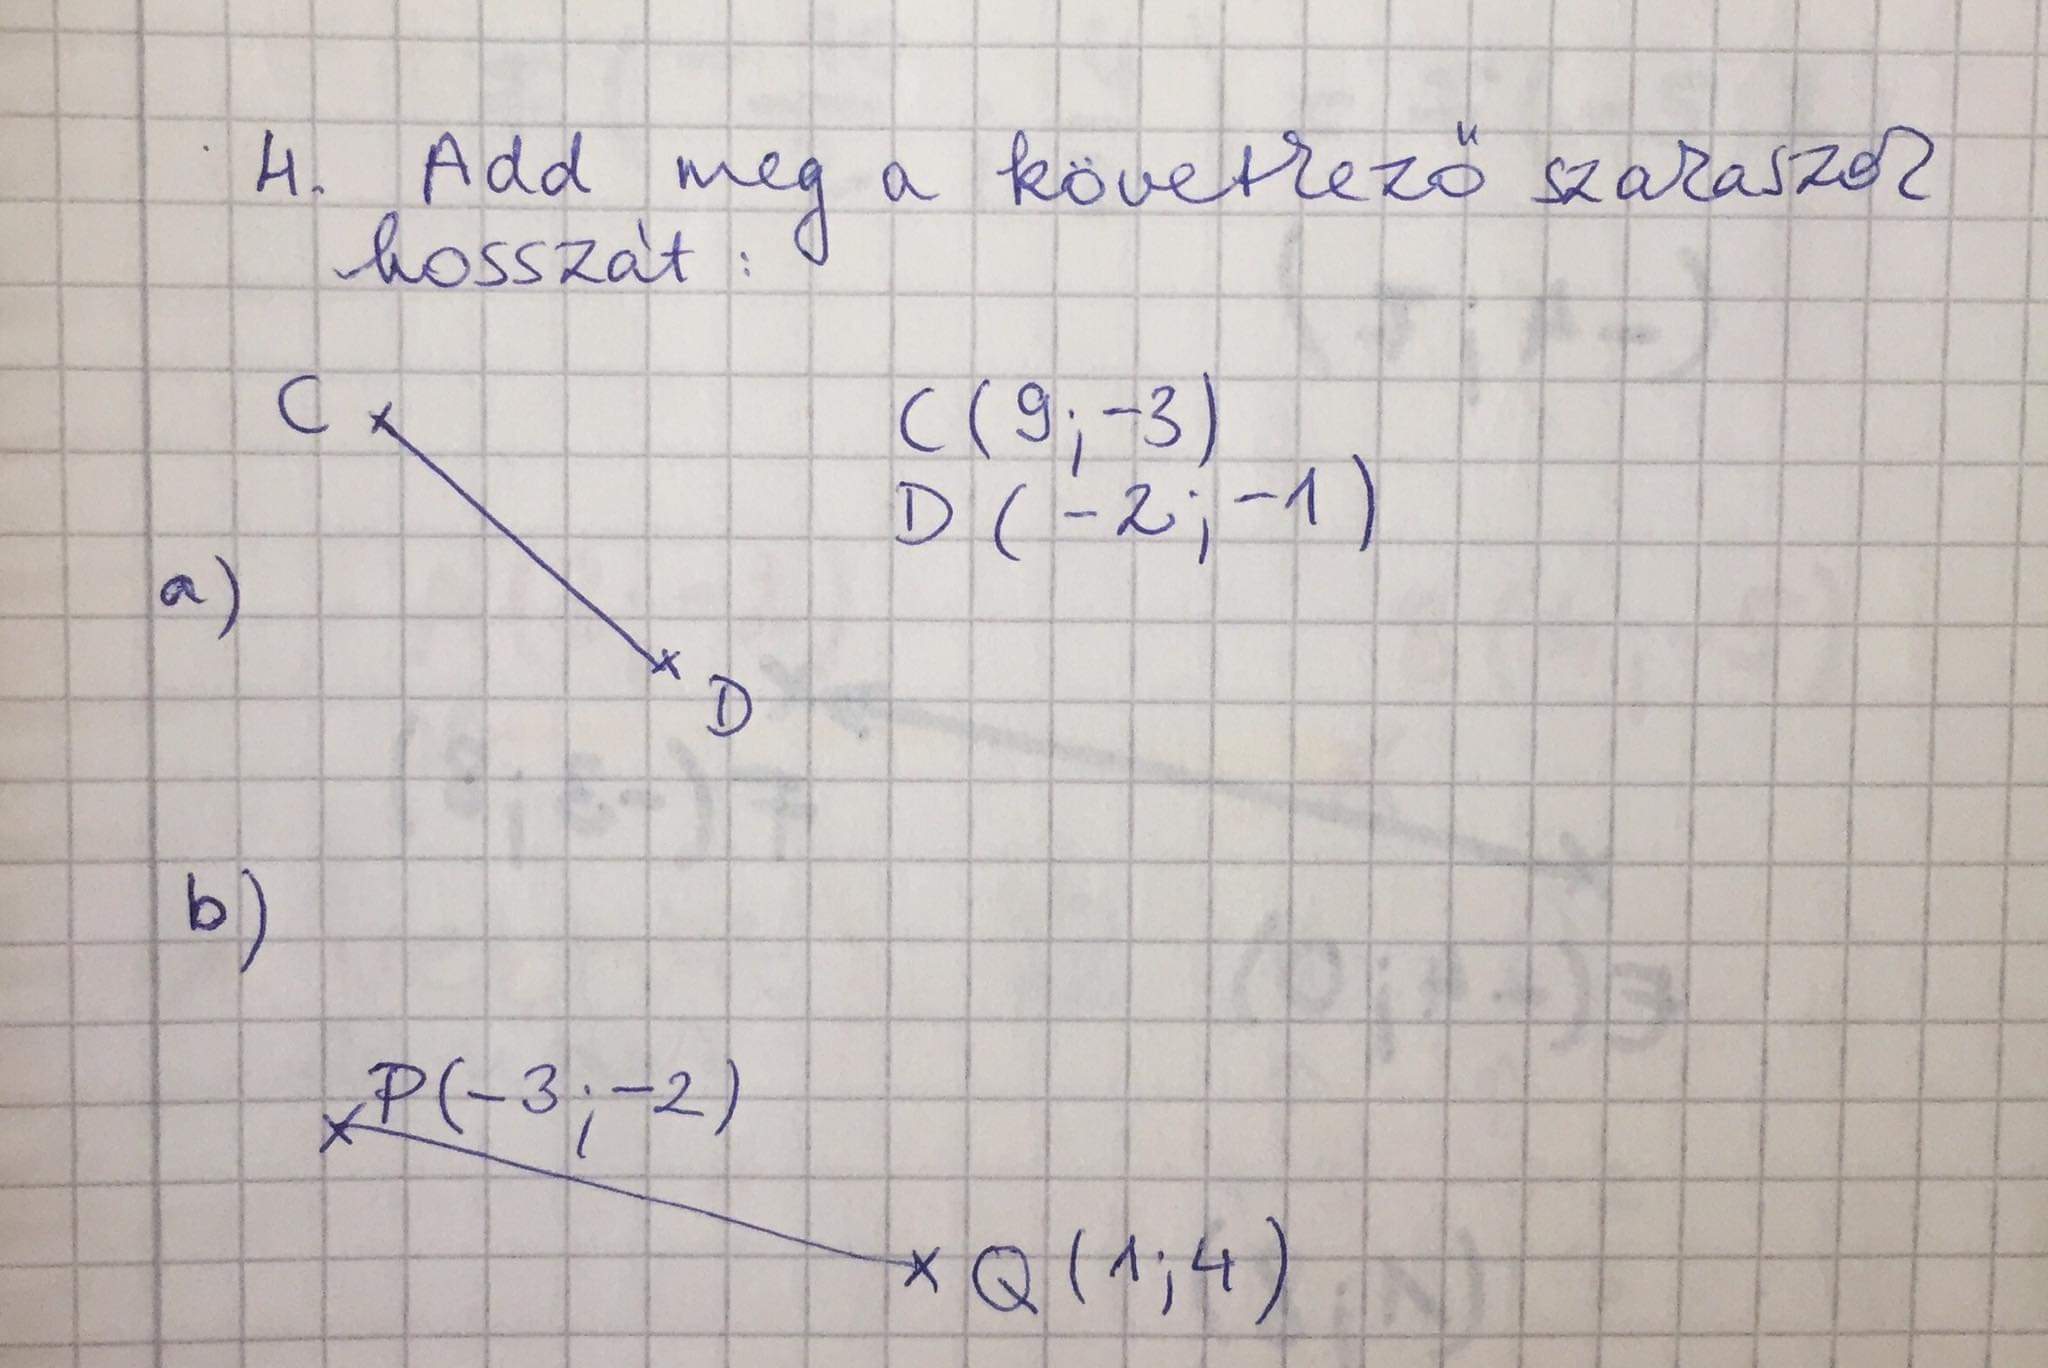 4. Add meg a következő szakaszok
hosszát:
C
C(9;-3)
D(-2;-1)
a)
D
b)
P(-3;-2)
Q(1;4)